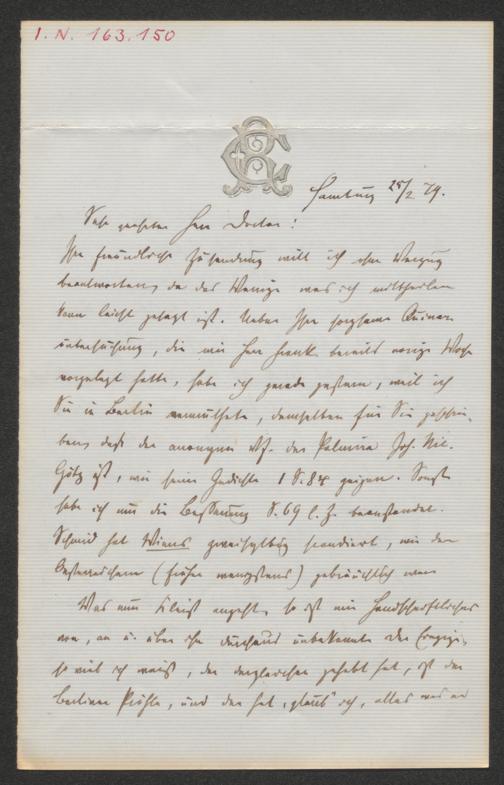 I. N. 163.150
Hamburg 25/2 79.
Sehr geehrter Herr Doctor!
Ihre freundliche Zusendung will ich ohne Verzug
beantworten, da das Wenige was ich mittheilen
kann leicht gesagt ist. Ueber Ihre sorgsame
untersuchung, die mir Herr bereits vorige Woche
vorgelegt hatte, habe ich gerade gestern, weil ich
Sie in Berlin vermuthete, demselben für Sie geschrie-
ben, daß der anonyme Vf. der Palinodie Joh. Nic.
Götz ist, wie seine Gedichte 1 S. 84 zeigen. Sonst
habe ich nur die S. 69 l. Z. beanstandet.
Schmid hat Wiens zweisylbig scandiert, wie den
Oesterreichern (früher wenigstens) gebräuchlich war
Was nun Kleist angeht, so ist mir Handschriftliches
von, an u. über ihn durchaus unbekannt. Der Einzige,
so viel ich weiß, der dergleichen gehabt hat, ist der
Berliner Pröhle, und der hat, glaub' ich, alles was er